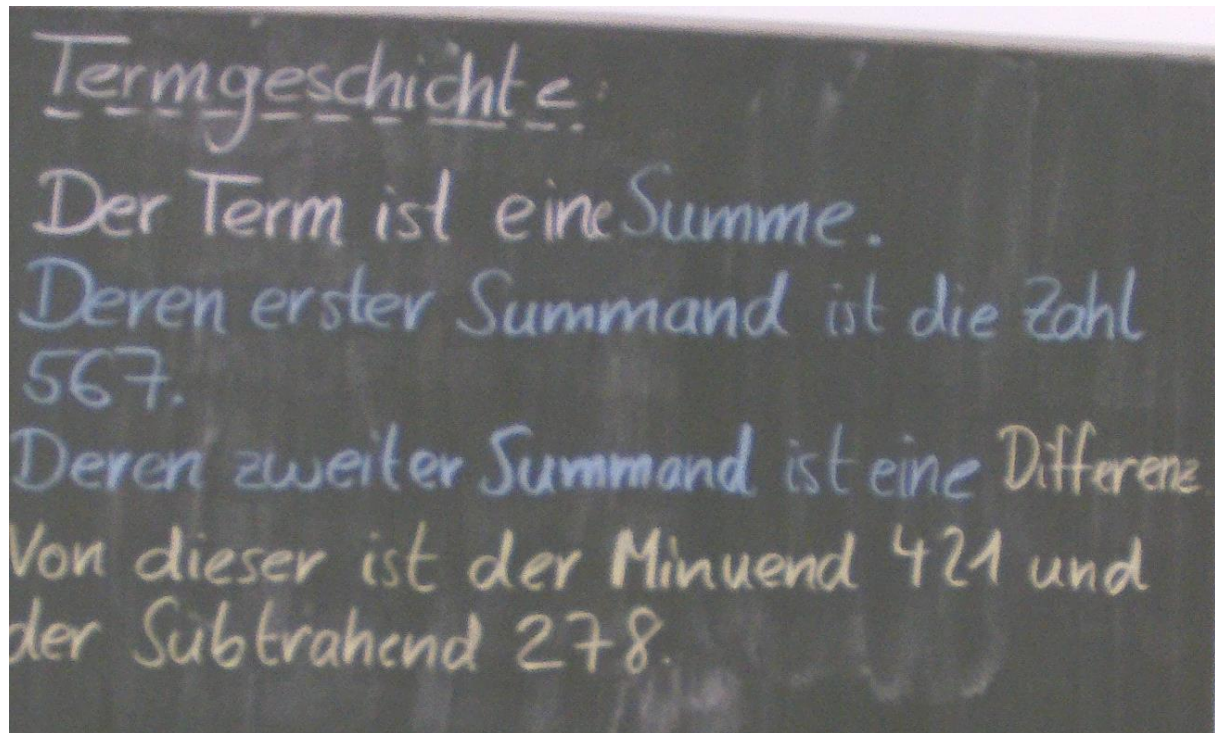 Termgeschichte:
Der Term ist eine Summe.
Deren erster Summand ist die Zahl
567.
Deren zweiter Summand ist eine Differenz
Von dieser ist der Minuend 421 und
der Subtrahend 278.